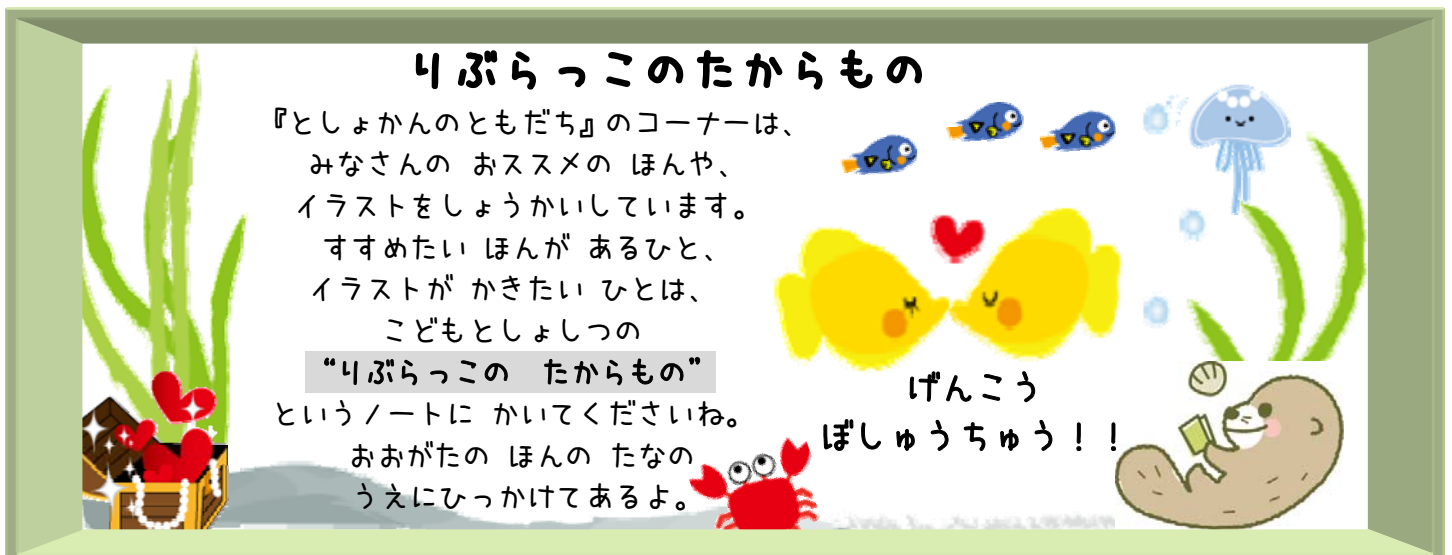 りぶらっこのたからもの
『としょかんのともだち』のコーナーは、
みなさんの おススメの ほんや、
イラストをしょうかいしています。
すすめたい ほんが あるひと、
イラストが かきたい ひとは、
こどもとしょしつの
“りぶらっこの　たからもの”
というノートに かいてくださいね。
おおがたの ほんの たなの
うえにひっかけてあるよ。
げんこう
ぼしゅうちゅう！！